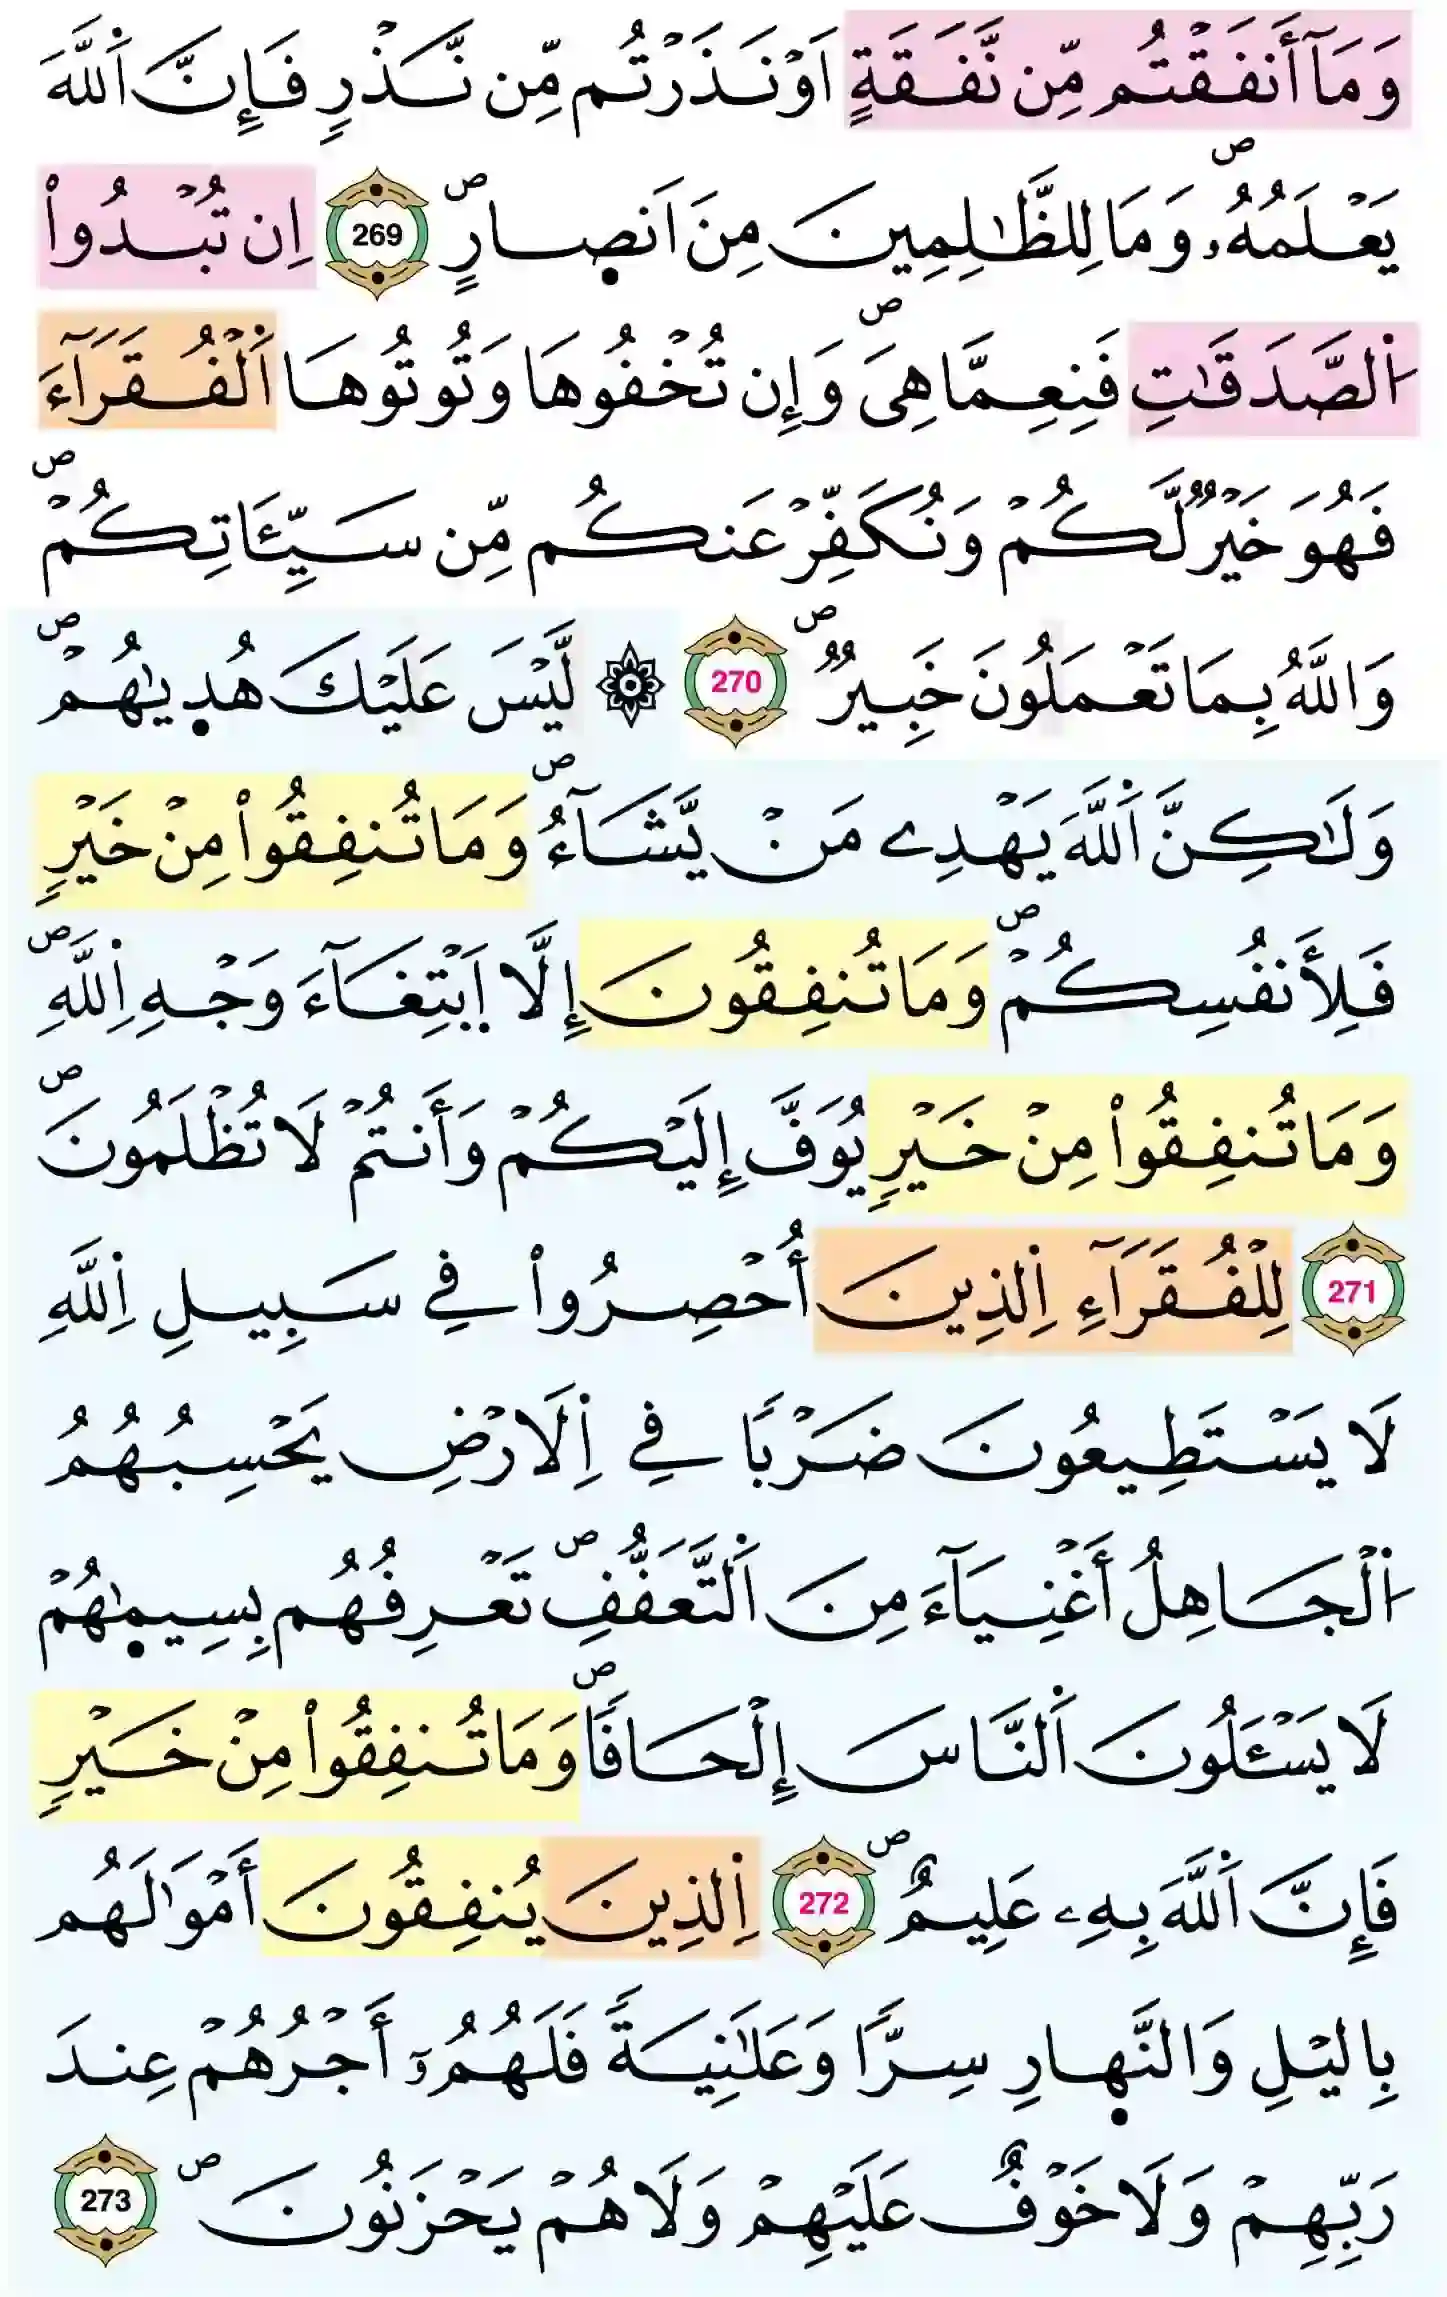 وَمَآ أَنفَقْتُم مِّن نَّفَقَةٍ اَوْ نَذَرْتُم مِّن نَّذْرٍ فَإِنَّ اَ۬للَّهَ
يَعْلَمُهُۥۖ وَمَا لِلظَّٰلِمِينَ مِنَ اَنص۪ارٍۖ 269 اِن تُبْدُواْ
اُ۬لصَّدَقَٰتِ فَنِعِمَّا هِىَۖ وَإِن تُخْفُوهَا وَتُوتُوهَا اَ۬لْفُقَرَآءَ
فَهُوَ خَيْرٌ لَّكُمْ وَنُكَفِّرْ عَنكُم مِّن سَيِّـَٔاتِكُمْۖ
وَاللَّهُ بِمَا تَعْمَلُونَ خَبِيرٌۖ 270 ۞ لَّيْسَ عَلَيْكَ هُد۪يٰهُمْۖ
وَلَٰكِنَّ اَ۬للَّهَ يَهْدِے مَنْ يَّشَآءُۖ وَمَا تُنفِقُواْ مِنْ خَيْرٍ
فَلِأَنفُسِكُمْۖ وَمَا تُنفِقُونَ إِلَّا اَ۪بْتِغَآءَ وَجْهِ اِ۬للَّهِۖ
وَمَا تُنفِقُواْ مِنْ خَيْرٍ يُوَفَّ إِلَيْكُمْ وَأَنتُمْ لَا تُظْلَمُونَۖ
271 لِلْفُقَرَآءِ اِ۬لذِينَ أُحْصِرُواْ فِے سَبِيلِ اِ۬للَّهِ
لَا يَسْتَطِيعُونَ ضَرْبًا فِے اِ۬لَارْضِ يَحْسِبُهُمُ
اُ۬لْجَاهِلُ أَغْنِيَآءَ مِنَ اَ۬لتَّعَفُّفِۖ تَعْرِفُهُم بِسِيمٰ۪هُمْ
لَا يَسْـَٔلُونَ اَ۬لنَّاسَ إِلْحَافًاۖ وَمَا تُنفِقُواْ مِنْ خَيْرٍ
فَإِنَّ اَ۬للَّهَ بِهِۦ عَلِيمٌۖ 272 اِ۬لذِينَ يُنفِقُونَ أَمْوَٰلَهُم
بِاليْلِ وَالنَّه۪ارِ سِرًّا وَعَلَٰنِيَةً فَلَهُمُۥٓ أَجْرُهُمْ عِندَ
رَبِّهِمْ وَلَا خَوْفٌ عَلَيْهِمْ وَلَا هُمْ يَحْزَنُونَۖ 273